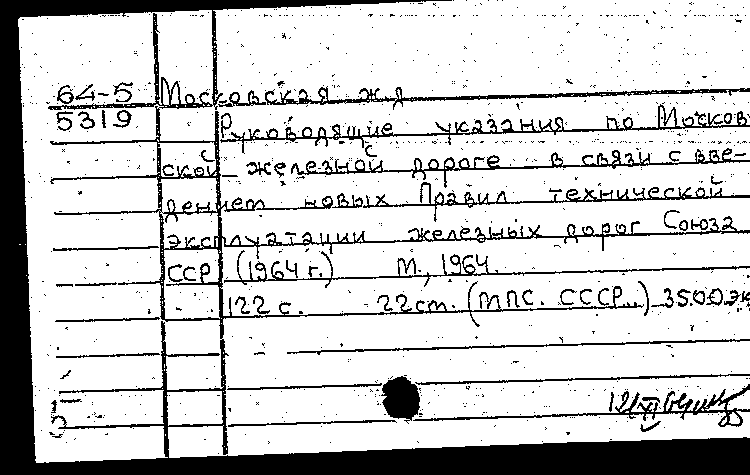 64-5 Московская ж.д
5319 Руководящие указания по Москов-
ской железной дороге в связи с вве-
дением новых Правил технической
эксплуатации железных дорог Союза
ССР (1964 г.) М., 1964.
122 с. 22 см. (МПС. СССР..) 3500 эк